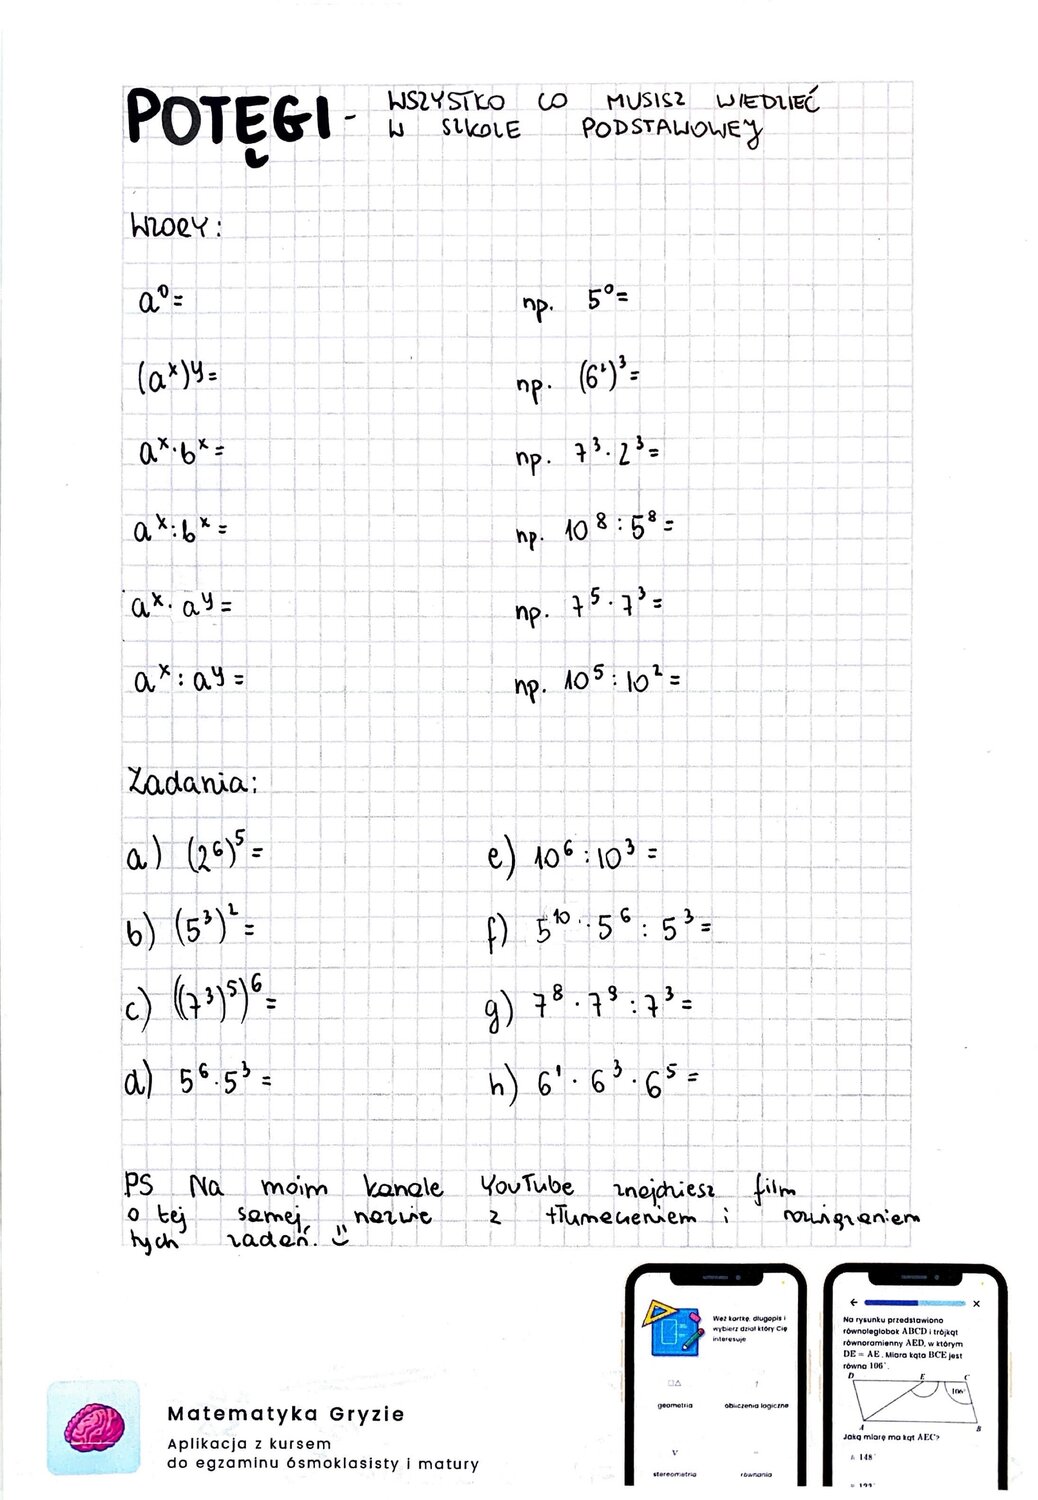 POTĘGI - WSZYSTKO CO MUSISZ WIEDZIEĆ
W SZKOLE PODSTAWOWEJ
Wzory:
a⁰= np. 5⁰=
(aˣ)ʸ= np. (6²)³=
aˣ·bˣ= np. 7³·2³=
aˣ:bˣ= np. 10⁸:5⁸=
aˣ·aʸ= np. 7⁵·7³=
aˣ:aʸ= np. 10⁵:10²=
Zadania:
a) (2⁶)⁵= e) 10⁶:10³=
b) (5³)²= f) 5¹⁰·5⁶:5³=
c) ((7³)⁵)⁶= g) 7⁸·7⁹:7³=
d) 5⁶·5³= h) 6¹·6³·6⁵=
PS Na moim kanale YouTube znajdziesz film
o tej samej nazwie z tłumaczeniem i rozwiązaniem
tych zadań.
Weź kartkę, długopis i
wybierz dział który Cię
interesuje
geometria
obliczenia logiczne
stereometria
równania
Na rysunku przedstawiono
równoległobok ABCD i trójkąt
równoramienny AED, w którym
DE = AE. Miara kąta BCE jest
równa 106°.
D E C
106°
A B
Jaką miarę ma kąt AEC?
148°
Matematyka Gryzie
Aplikacja z kursem
do egzaminu ósmoklasisty i matury